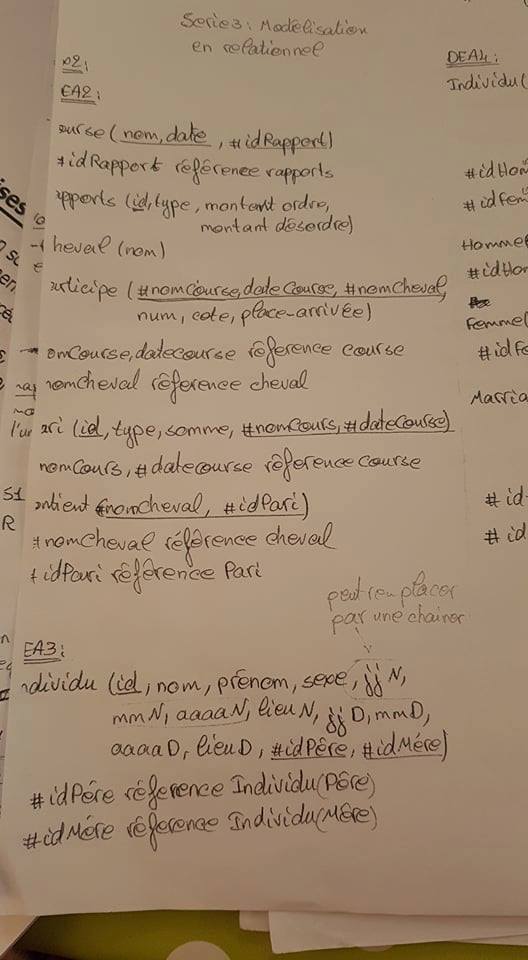 Serie3: Modélisation
en relationnel
D2:
EA2:
ourse (nom, date, #idRapport)
#idRapport référence rapports
apports (id, type, montant ordre,
montant désordre)
heval (nom)
articipe (#nomCourse, dateCourse, #nomCheval,
num, cote, place-arrivée)
omCourse, datecourse référence course
nomcheval référence cheval
ari (id, type, somme, #nomCours, #dateCourse)
nomCours, #datecourse référence course
ontient (nomcheval, #idPari)
#nomcheval référence cheval
#idPari référence Pari
peut remplacer
par une chainer
EA3:
ndividu (id, nom, prénom, sexe, jjN,
mmN, aaaaN, lieuN, jjD, mmD,
aaaaD, lieuD, #idPère, #idMére)
#idPére référence Individu(Père)
#idMére référence Individu(Mère)
DEA4:
Individu(
#idHom
#idfem
Homme(
#idHor
Femme(
#idFe
Marria
#id-
#id